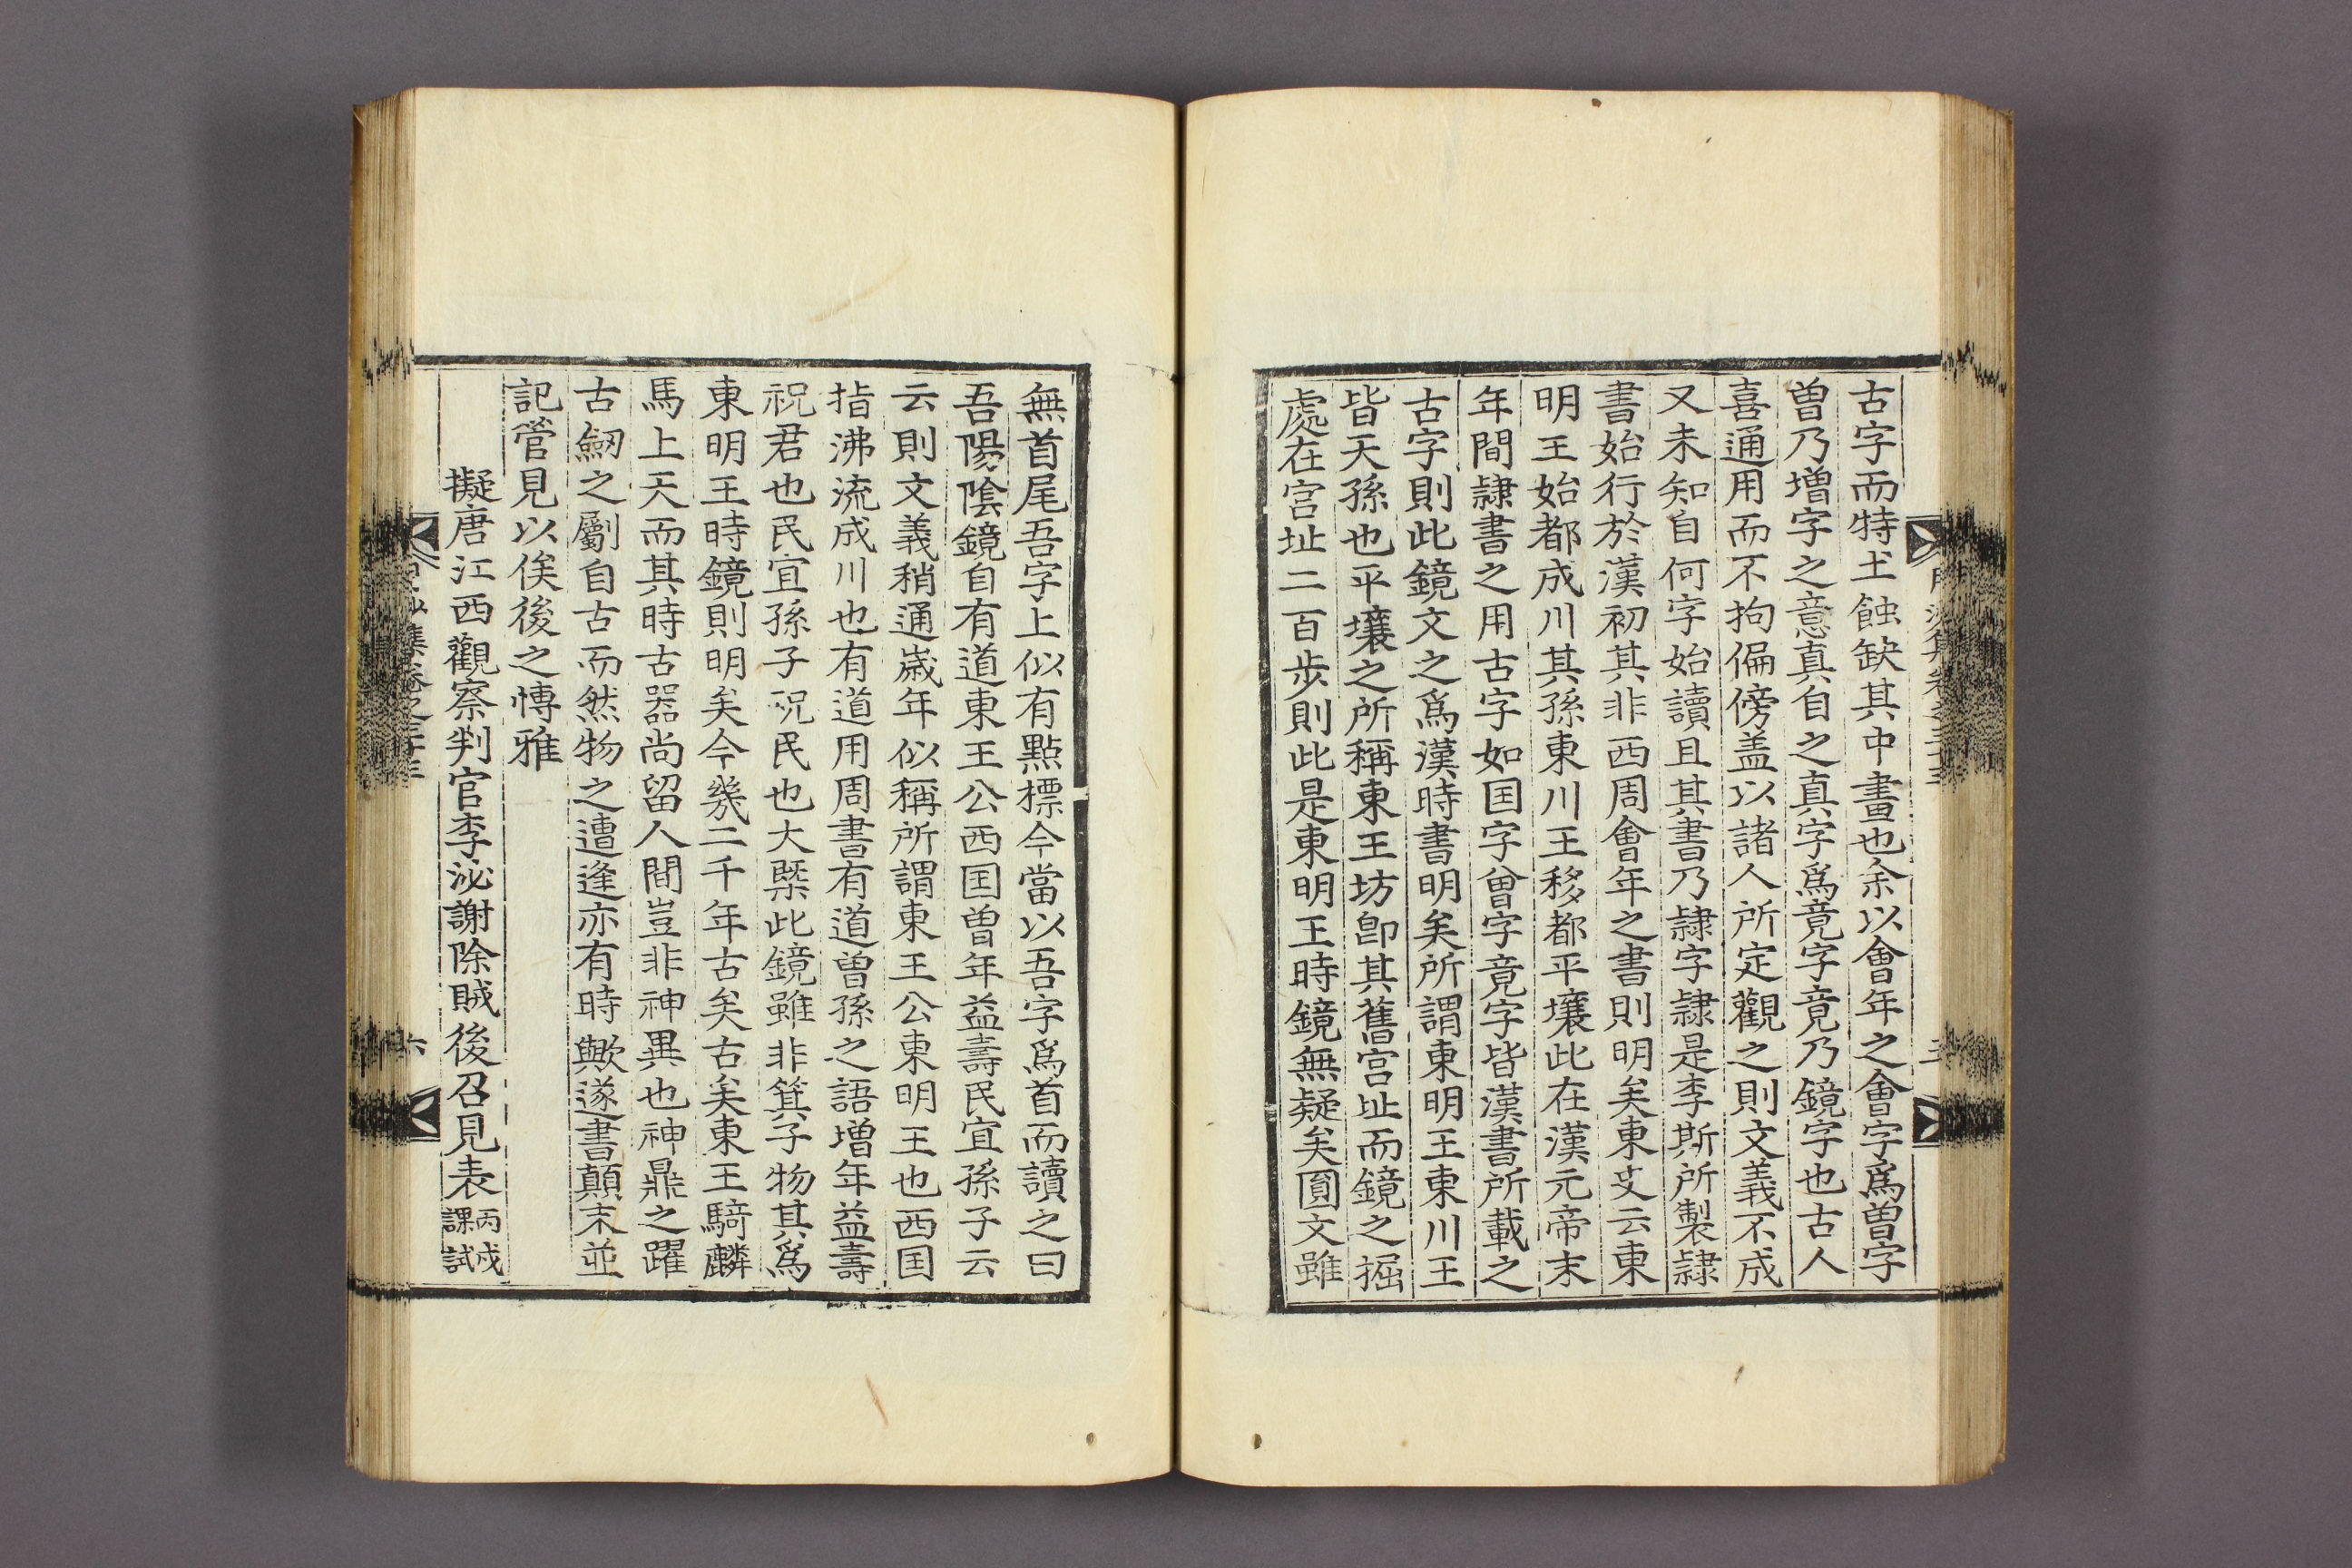 古字而特土蝕缺其中畫也余以會年之會字爲曽字
曽乃增字之意真自之真字爲竟字竟乃鏡字也古人
喜通用而不拘偏傍盖以諸人所定觀之則文義不成
又未知自何字始讀且其書乃隷字隷是李斯所製隷
書始行於漢初其非西周會年之書則明矣東史云東
明王始都成川其孫東川王移都平壤此在漢元帝末
年間隷書之用古字如囯字曾字竟字皆漢書所載之
古字則此鏡文之爲漢時書明矣所謂東明王東川王
皆天孫也平壤之所稱東王坊卽其舊宮址而鏡之掘
處在宮址二百步則此是東明王時鏡無疑矣圎文雖
無首尾吾字上似有點標今當以吾字爲首而讀之曰
吾陽陰鏡自有道東王公西囯曽年益壽民宜孫子云
云則文義稍通嵗年似稱所謂東王公東明王也西囯
指沸流成川也有道用周書有道曽孫之語增年益壽
祝君也民宜孫子祝民也大槩此鏡雖非箕子物其爲
東明王時鏡則明矣今幾二千年古矣古矣東王騎麟
馬上天而其時古器尚留人間豈非神異也神鼎之躍
古劒之斸自古而然物之遭逢亦有時歟遂書顛末並
記管見以俟後之愽雅
擬唐江西觀察判官李泌謝除賊後召見表 丙戌課試
集卷之三十三
六